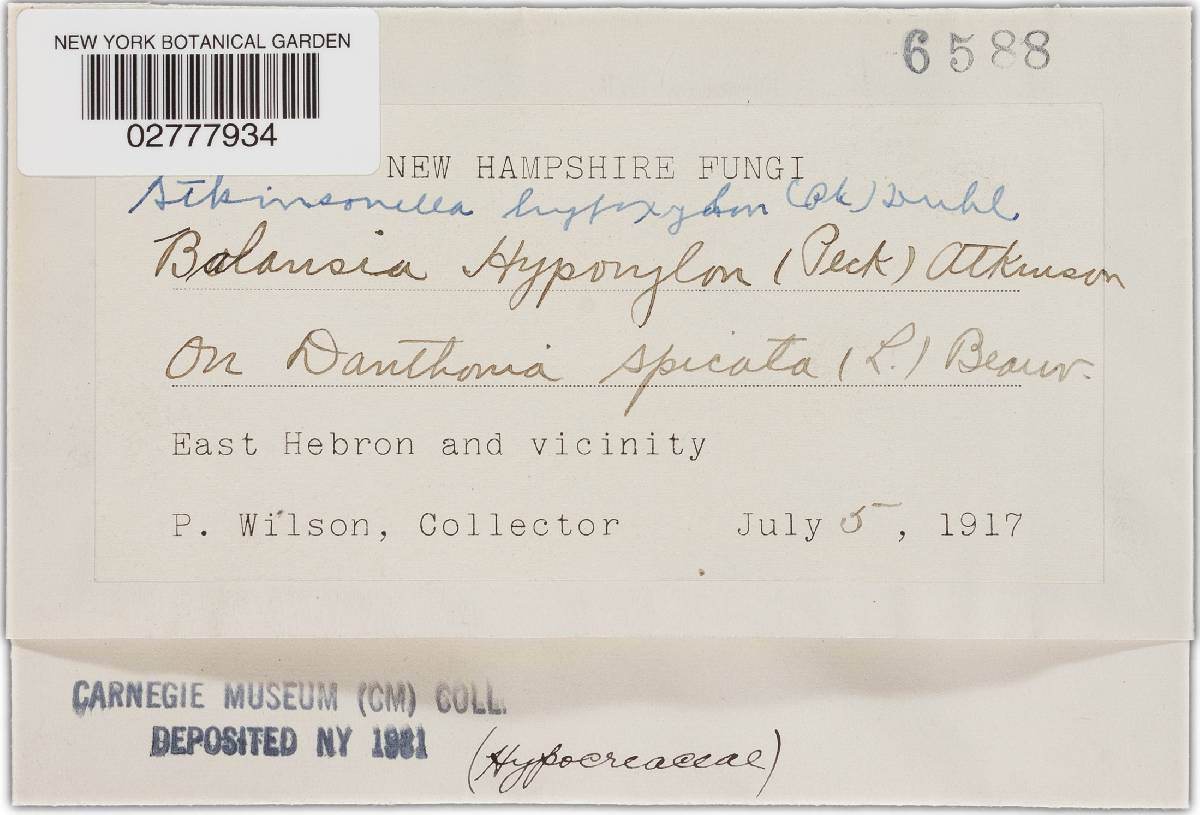 NEW YORK BOTANICAL GARDEN
02777934
6588
NEW HAMPSHIRE FUNGI
Atkinsonella hypoxylon (Pk) Diehl
Balansia Hypoxylon (Peck) Atkinson
On Danthonia spicata (L.) Beauv.
East Hebron and vicinity
P. Wilson, Collector July 5, 1917
CARNEGIE MUSEUM (CM) COLL.
DEPOSITED NY 1981
(Hypocreaceae)